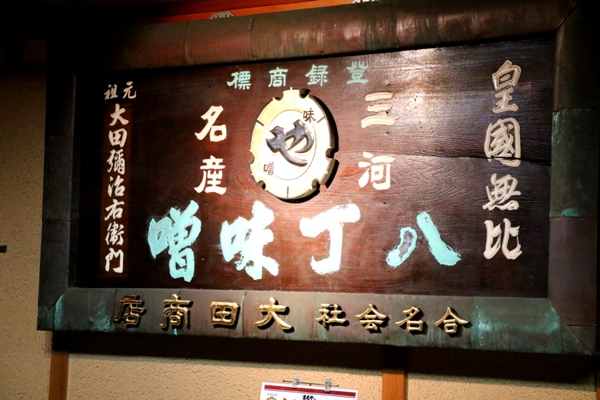 皇國無比
登録商標
三河
味
噌
名産
八丁味噌
元祖
大田彌治右衛門
合名会社大田商店